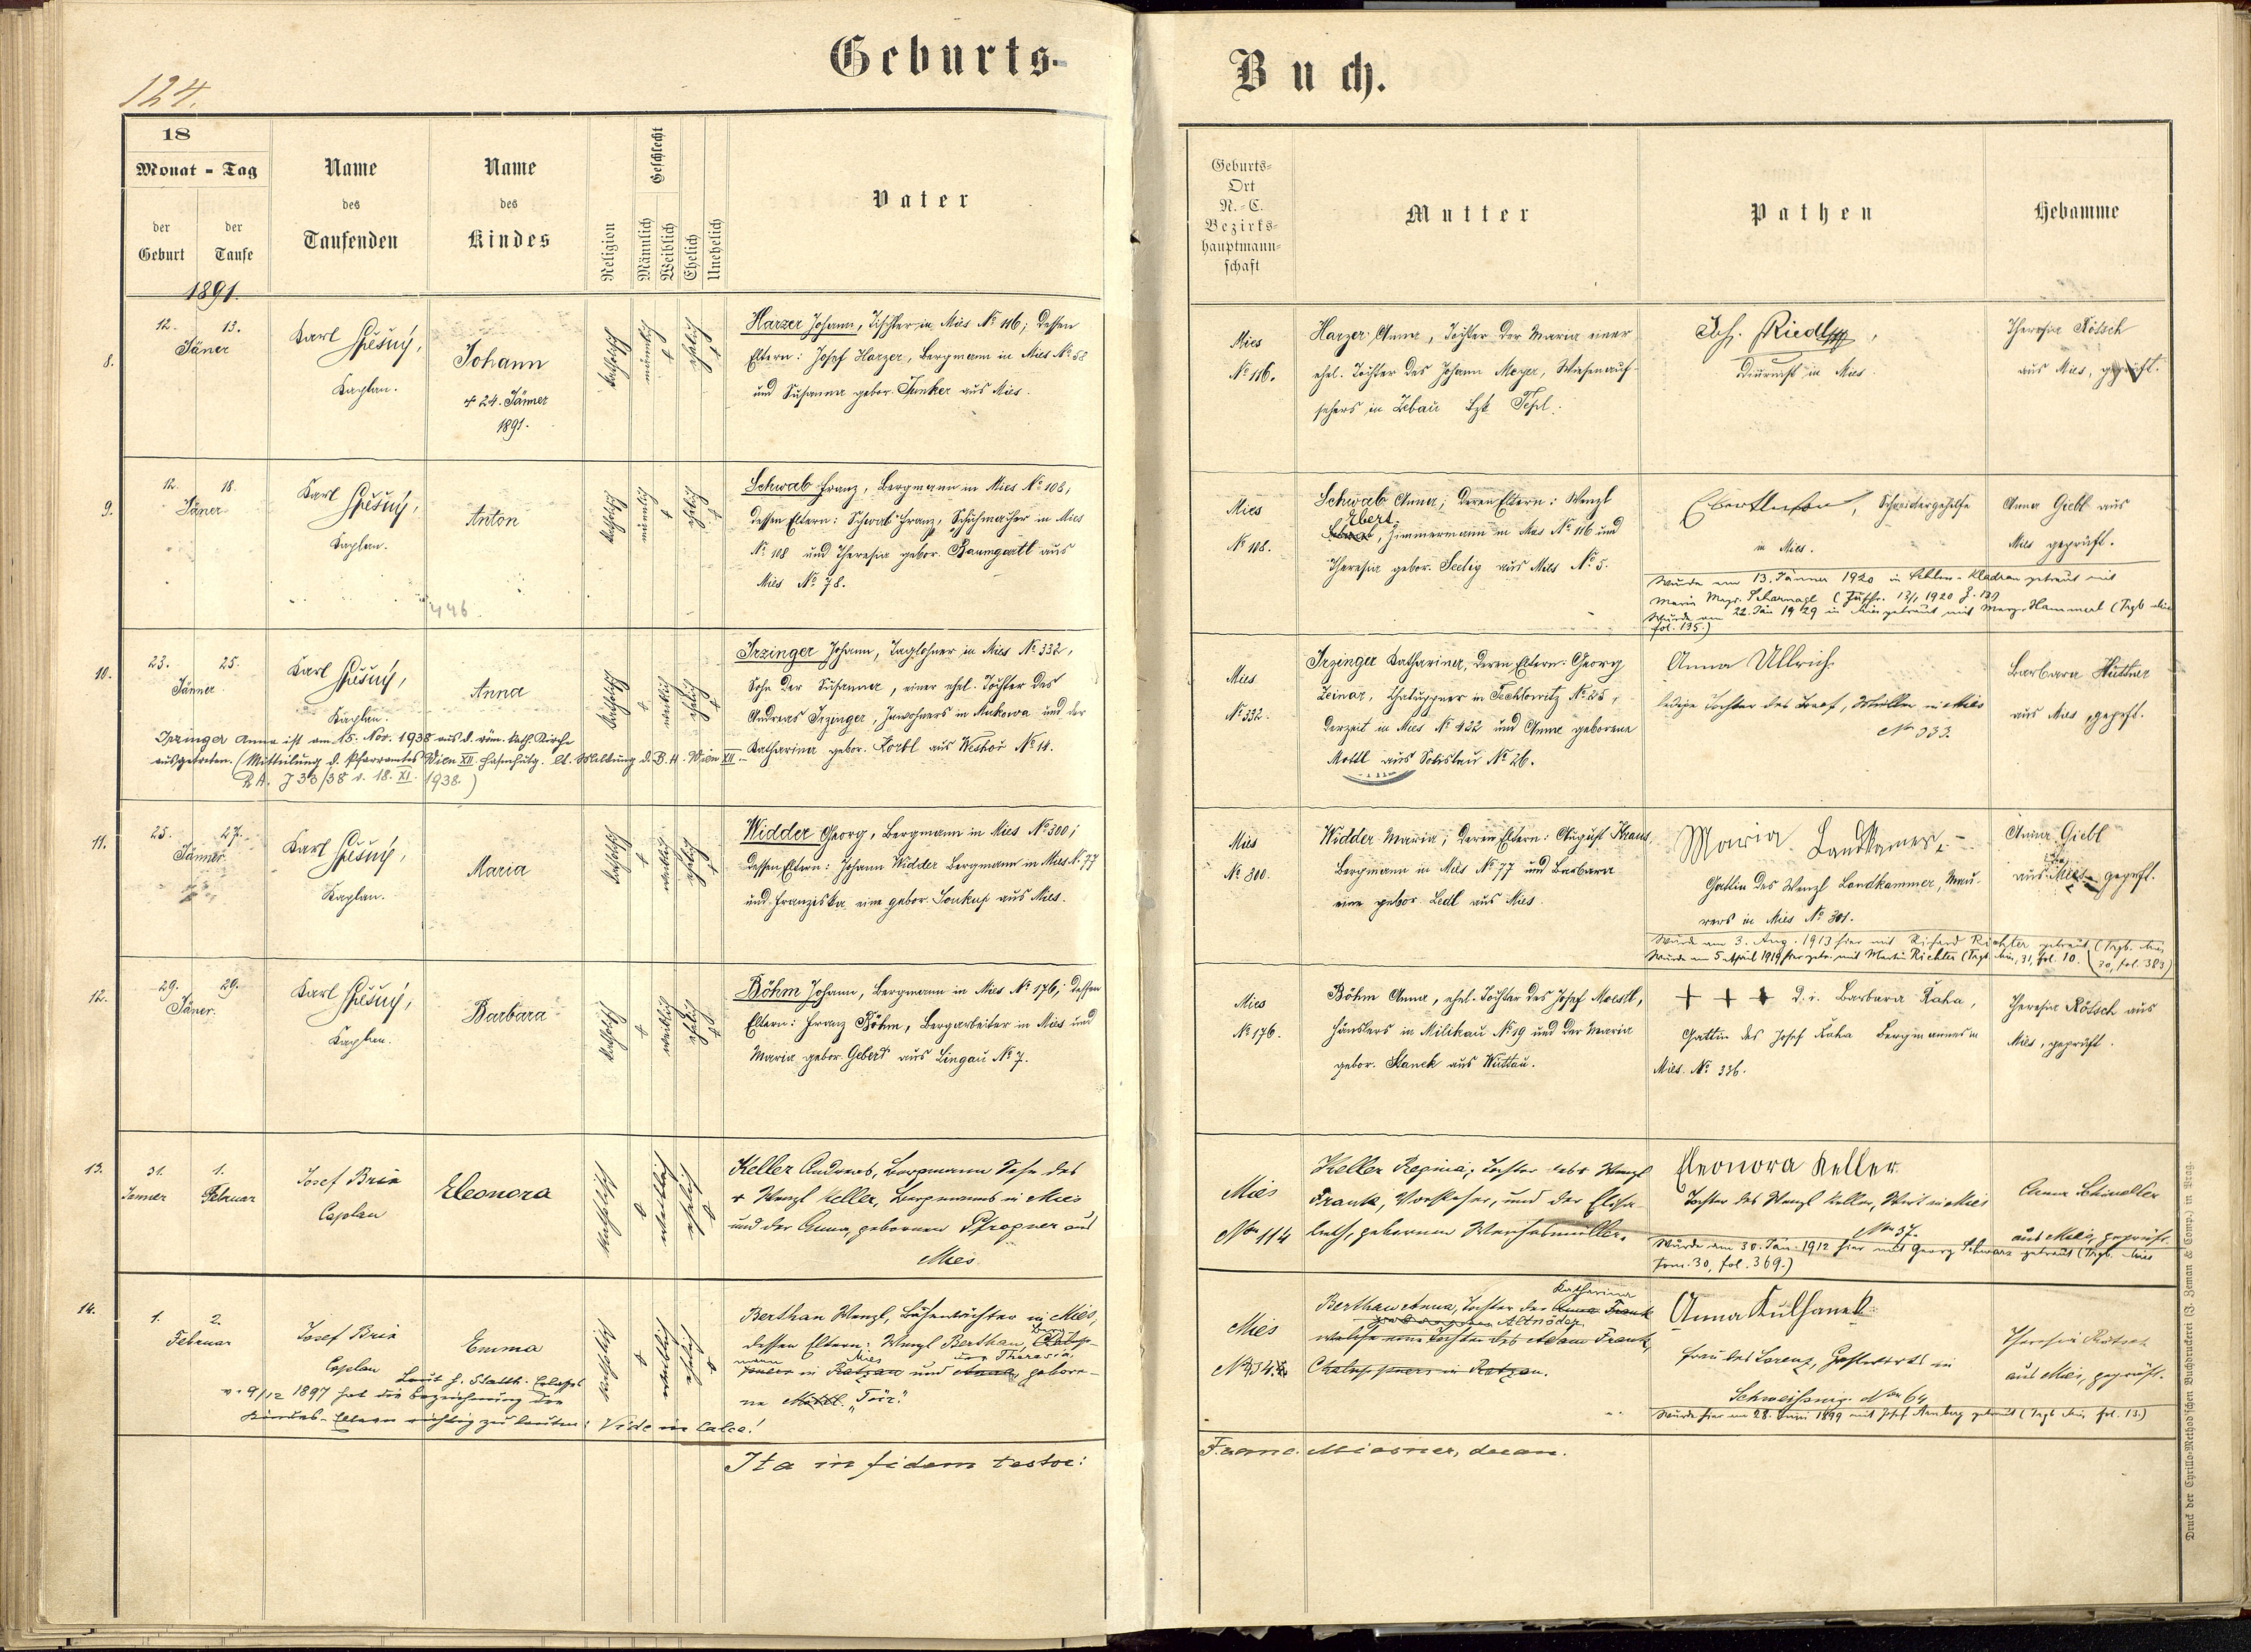 124.
Geburts-
Buch.
18
Monat - Tag
der Geburt
der Taufe
Name des Taufenden
Name des Kindes
Religion
Geschlecht
Männlich
Weiblich
Ehelich
Unehelich
Vater
Geburts-
Ort
N.-C.
Bezirks-
hauptmann-
schaft
Mutter
Pathen
Hebamme
1891.
8.
12. 13.
Jäner
Karl
Kaplan.
Johann
+ 24. Jänner
1891.
katholisch
männlich
ehelich
Harzer Johann, Tischler in Mies No 116; dessen
Eltern: Josef Harzer, Bergmann in Mies No 58
und Susanna gebor. Junker aus Mies.
Mies
No 116.
Harzer Anna, Tochter der Maria einer
ehel. Tochter des Johann Meyer, Wiesenauf-
sehers in Zebau Bzk Tepl.
Jos. Riedl
Diurnist in Mies.
Theresia Rötsch
aus Mies, geprüft.
9.
12. 18.
Jäner
Karl
Kaplan.
Anton
446
katholisch
männlich
ehelich
Schwab Franz, Bergmann in Mies No 108,
dessen Eltern: Schwab Franz, Schuhmacher in Mies
No 108 und Theresia gebor. Baumgartl aus
Mies No 78.
Mies
No 108.
Schwab Anna; deren Eltern: Wenzl
Ebert
Zimmermann in Mies No 116 und
Theresia gebor. Seelig aus Mies No 5.
Schneidergehilfe
in Mies.
Wurde am 13. Jänner 1920 in Kladrau getraut mit
Maria Magd. Scharnagl
Wurde am 22. Jän 1929 in Mies getraut mit Marg. Hammerl (Trgb Mies
fol. 135.)
Anna Giebl aus
Mies geprüft.
10.
23. 25.
Jänner
Karl
Kaplan.
Anna
katholisch
weiblich
ehelich
Irzinger Johann, Taglöhner in Mies No 332,
Sohn der Susanna, einer ehel. Tochter des
Andreas Irzinger, Inwohners in und der
Katharina gebor. Korbl aus Weshor No 14.
Irzinger Anna ist am 15. Nov. 1938 aus d. röm. kath. Kirche
ausgetreten. (Mitteilung d. Pfarramtes Wien XII lt. Meldung d. B. H. Wien XII
Z. 33/38 v. 18. XI. 1938.)
Mies
No 332.
Irzinger Katharina, deren Eltern: Georg
Zeinar, Chaluppner in Techlowitz No 25,
derzeit in Mies No 422 und Anna geborene
Mottl aus Solislau No 26.
Anna Ullrich
ledige Tochter des Josef, Müller in Mies
No 333.
Barbara Hüttner
aus Mies, geprft.
11.
25. 27.
Jänner
Karl
Kaplan.
Maria
katholisch
weiblich
ehelich
Widder Georg, Bergmann in Mies No 300;
dessen Eltern: Johann Widder Bergmann in Mies N. 77
und Franziska eine gebor. Soukup aus Mies.
Mies
No 300.
Widder Maria; deren Eltern: August Kraus
Bergmann in Mies No 77 und Barbara
eine gebor. Ledl aus Mies.
Maria Landkamer,
Gattin des Wenzl Landkammer, Mau-
rers in Mies No 301.
Wurde am 3. Aug. 1913 hier mit Richard Richter getraut (Trgb. Mies
30, fol. 383)
Wurde am 5 April 1919 hier getr. mit Martin Richter (Trgb. Mies, 31, fol. 10.
Anna Giebl
aus Mies geprft.
12.
29. 29.
Jäner.
Karl
Kaplan.
Barbara
katholisch
weiblich
ehelich
Böhm Johann, Bergmann in Mies No 176; dessen
Eltern: Franz Böhm, Bergarbeiter in Mies und
Maria gebor. Gebert aus Lingau No 7.
Mies
No 176.
Böhm Anna, ehel. Tochter des Josef Moestl,
Häuslers in Milikau No 19 und der Maria
gebor. Stanek aus Wuttau.
+ + + d. i. Barbara Kaha,
Gattin des Josef Kaha Bergmannes in
Mies. No 336.
Theresia Rötsch aus
Mies, geprüft.
13.
31. 1.
Jänner Februar
Josef Brin
Caplan
Eleonora
katholisch
weiblich
ehelich
Keller Andreas, Bergmann Sohn des
+ Wenzl Keller, Bergmanns in Mies
und der Anna, gebornen Pfrogner aus
Mies.
Mies
Nro 114
Keller Regina, Tochter des + Wenzl
Frank, und der Elisa-
beth, gebornen
Eleonora Keller
Tochter des Wenzl Keller, Wirt in Mies
Nro 37.
Wurde am 30. Jän. 1912 hier mit Georg Schwarz getraut (Trgb. Mies
tom. 30, fol. 369.)
Anna Schindler
aus Mies, geprüft.
14.
1. 2.
Februar
Josef Brin
Caplan
Emma
katholisch
weiblich
ehelich
Laut h. Statth. Erlasses
v. 9/12 1897 hat die Bezeichnung der
Kindes-Eltern richtig zu lauten: Vide in calce!
Berthan Wenzl, in Mies,
dessen Eltern: Wenzl Berthan,
in Mies und Theresia, gebore-
ne
Mies
Berthan Anna, Tochter der Katharina Frank
Altnöder
welche eine Tochter des Adam Frank,
Chaluppners in Ratzau.
Anna Kulhanek
Frau des Lorenz, Gastwirts in
Schweissing. Nro 64.
Wurde hier am 28. Juni 1899 mit Josef getraut (Trgb Mies fol. 13.)
Theresia Rötsch
aus Mies, geprüft.
Ita in fidem testor:
Franc. Miasner, decan.
Druck der Cyrillo-Method'schen Buchdruckerei (J. Zeman & Comp.) in Prag.